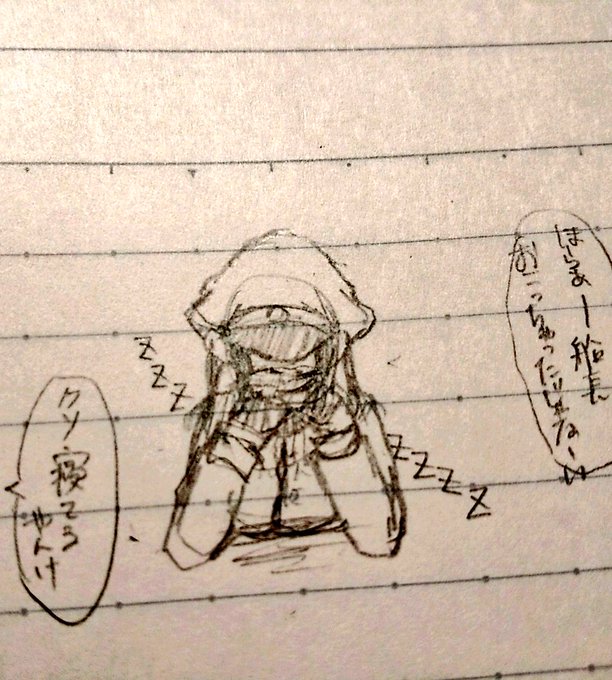 はらぁー船長
おこっちゃったじゃな〜い
z
z
z
z
z
z
z
クソ寝てる
やんけ